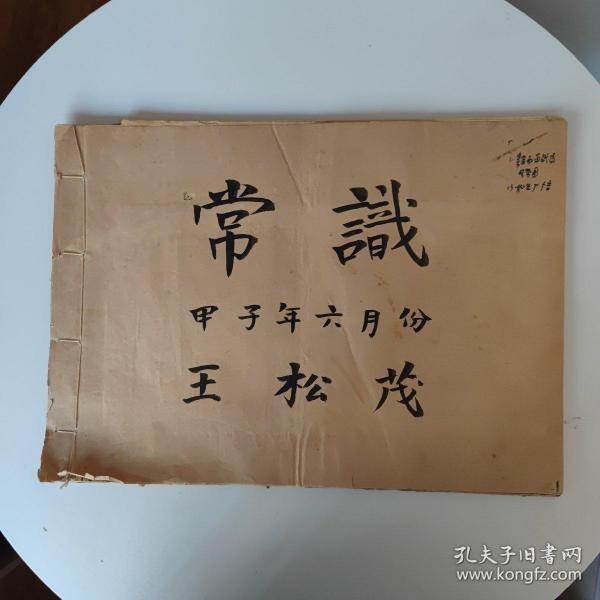 常識
甲子年六月份
王松茂
孔夫子旧書网
www.kongfz.com